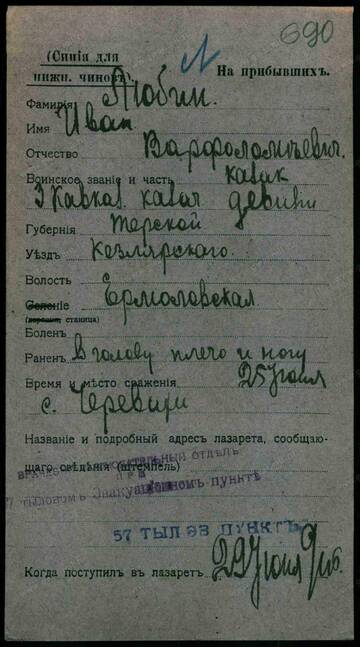 690
(Синія для
нижн. чиновъ).
На прибывшихъ.
Фамилія Любин.
Имя Иван
Отчество Варфоломеевич.
Воинское званіе и часть казак
3 Кавказ. казач дивизии
Губернія Терской
Уѣздъ Кезлярскаго.
Волость
Селеніе Ермоловская
(деревня, станица)
Боленъ
Раненъ в голову плечо и ногу
Время и мѣсто сраженія 25 Июля
с. Черевищи
Названіе и подробный адресъ лазарета, сообщаю-
щаго свѣдѣнія (штемпель)
57 ТЫЛ ЭВ ПУНКТЪ
Когда поступилъ въ лазаретъ 29 Июля 916.